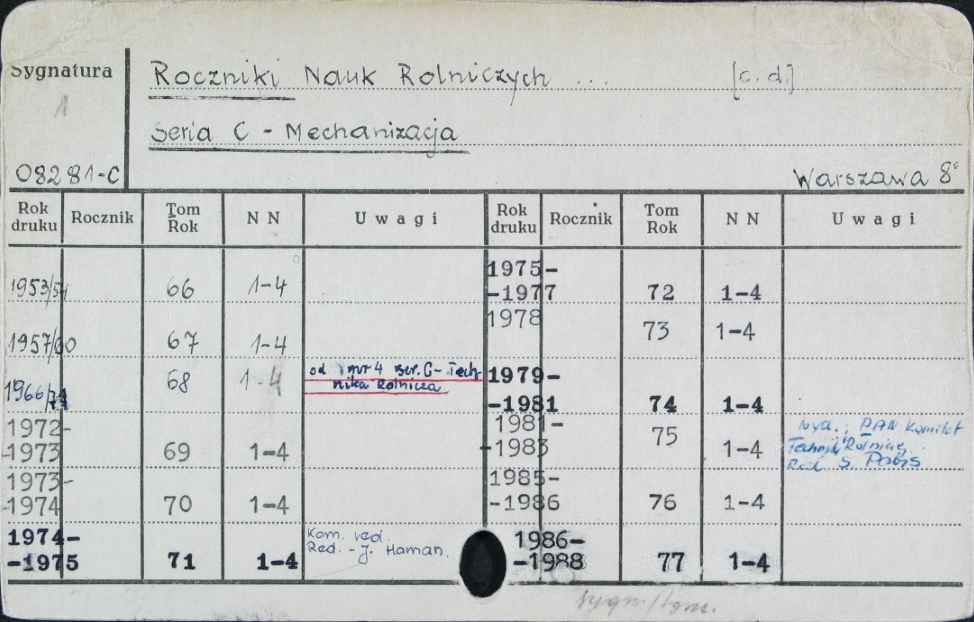 Sygnatura
Roczniki Nauk Rolniczych ... [c.d.]
1
Seria C - Mechanizacja
08281-C
Warszawa 8°
Rok druku Rocznik Tom Rok N N Uwagi Rok druku Rocznik Tom Rok N N Uwagi
1953/54 66 1-4
1957/60 67 1-4
1966/71 68 1-4 od nr 4 ser. C - Tech-
nika Rolnicza
1972-
-1973 69 1-4
1973-
-1974 70 1-4
1974-
-1975 71 1-4 Kom. red.
Red. - J. Haman.
1975-
-1977 72 1-4
1978 73 1-4
1979-
-1981 74 1-4
1981-
-1983 75 1-4 Wyd.: PAN Komitet
Techniki Rolniczej
Red. S. Pabis
1985-
-1986 76 1-4
1986-
-1988 77 1-4